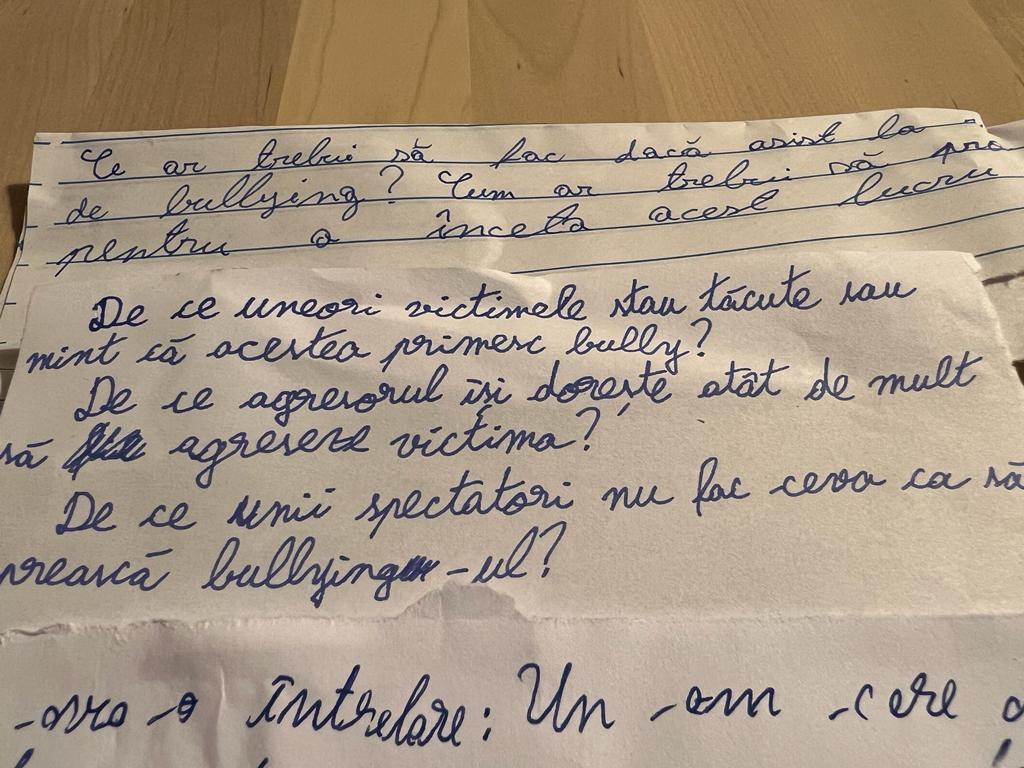 Ce ar trebui să fac dacă asist la
de bullying? Cum ar trebui să pro
pentru a înceta acest lucru
De ce uneori victimele stau tăcute sau
mint că acestea primesc bully?
De ce agresorul își dorește atât de mult
să agreseze victima?
De ce unii spectatori nu fac ceva ca să
prească bullying-ul?
întrebare: Un om care